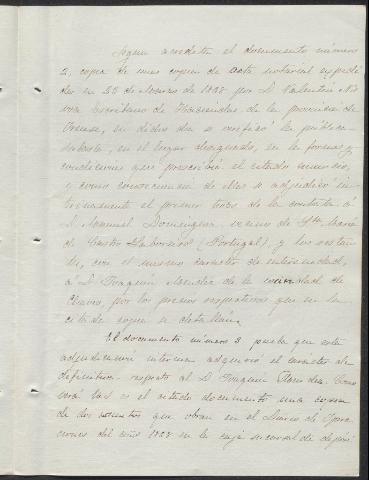 Segun acredita el documento número
2, copia de una copia de acta notarial expedi
da en 25 de Marzo de 1828 por D. Valentin
Escribano de Haciendas, de la provincia de
Orense, en dicho dia se verificó la pública
subasta, en el lugar designado, en la forma y
condiciones que prescribia el citado anuncio,
y como consecuencia de ellas se adjudicó in
terinamente el primer trozo de la contrata á
D. Manuel Dominguez, vecino de Sta. Maria
de Castro (Portugal), y los restan
tes, con el mismo carácter de interinidad,
á D. Joaquin de la ciudad de
Chaves, por los precios respectivos que en la
citada copia se detallan.
El documento número 3 prueba que esta
adjudicacion interina adquirió el carácter de
definitiva respecto al D. Joaquin
es el citado documento una copia
de dos asientos que obran en el Diario de Opera
ciones del año 1828 en la caja sucursal de depósi